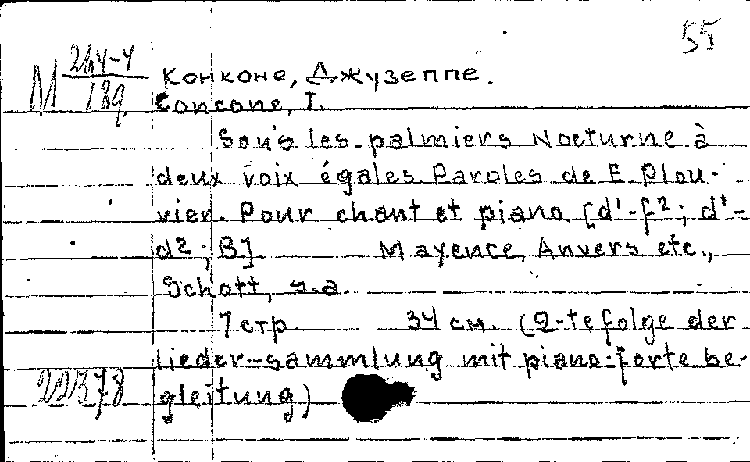 55
М 244-4 / 189 Конконе, Джузеппе.
Concone, J.
Sou's les palmiers Nocturne à
deux voix égales Paroles de E. Plou-
vier. Pour chant et piano. [d¹-f²; d¹-
d²; B]. Mayence, Anvers etc.,
Schott, s.a.
7 стр. 34 см. (2-te folge der
lieder-sammlung mit piano-forte be-
22378 gleitung)